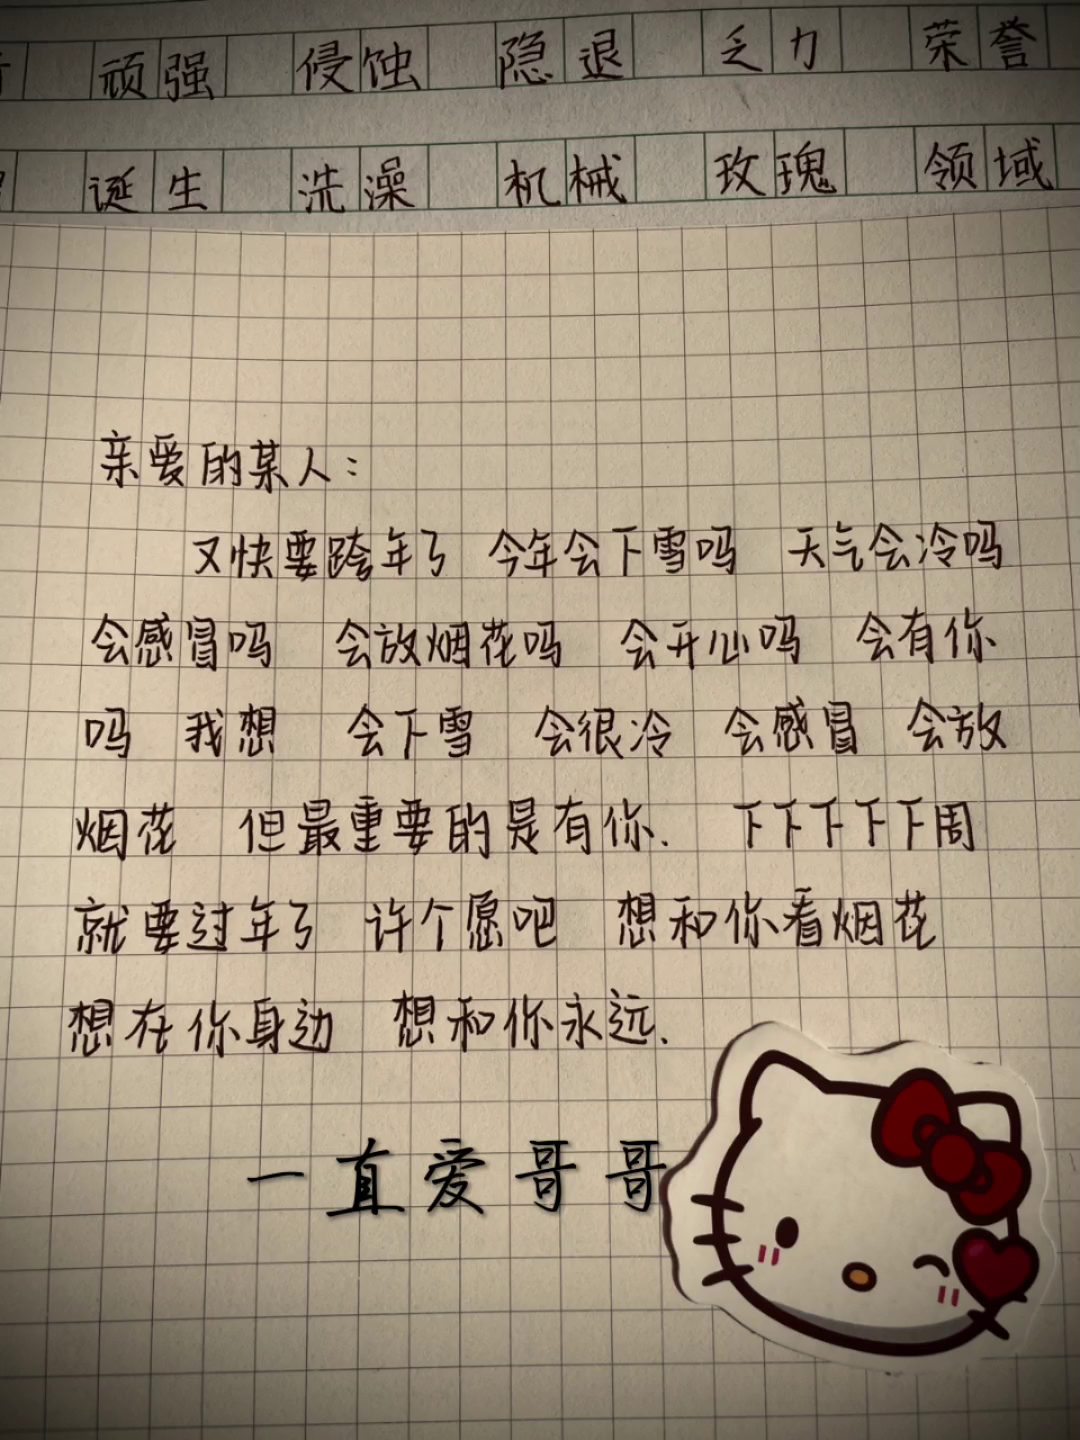 顽强 侵蚀 隐退 乏力 荣誉
诞生 洗澡 机械 玫瑰 领域
亲爱的某人：
又快要跨年了 今年会下雪吗 天气会冷吗
会感冒吗 会放烟花吗 会开心吗 会有你
吗 我想 会下雪 会很冷 会感冒 会放
烟花 但最重要的是有你. 下下下下下周
就要过年了 许个愿吧 想和你看烟花
想在你身边 想和你永远.
一直爱哥哥